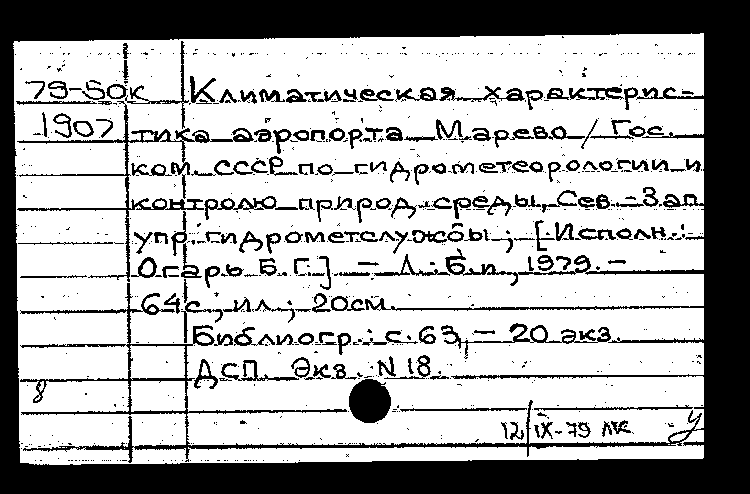 79-50к Климатическая характерис-
1907 тика аэропорта Марево / Гос.
ком. СССР по гидрометеорологии и
контролю природ. среды, Сев.-Зап.
упр. гидрометслужбы ; [Исполн.:
Огарь Б.Г.] — Л. : Б.и., 1979. —
64с., ил.; 20см.
Библиогр.: с. 63, — 20 экз.
ДСП. Экз. N 18.
8
12/IX-79